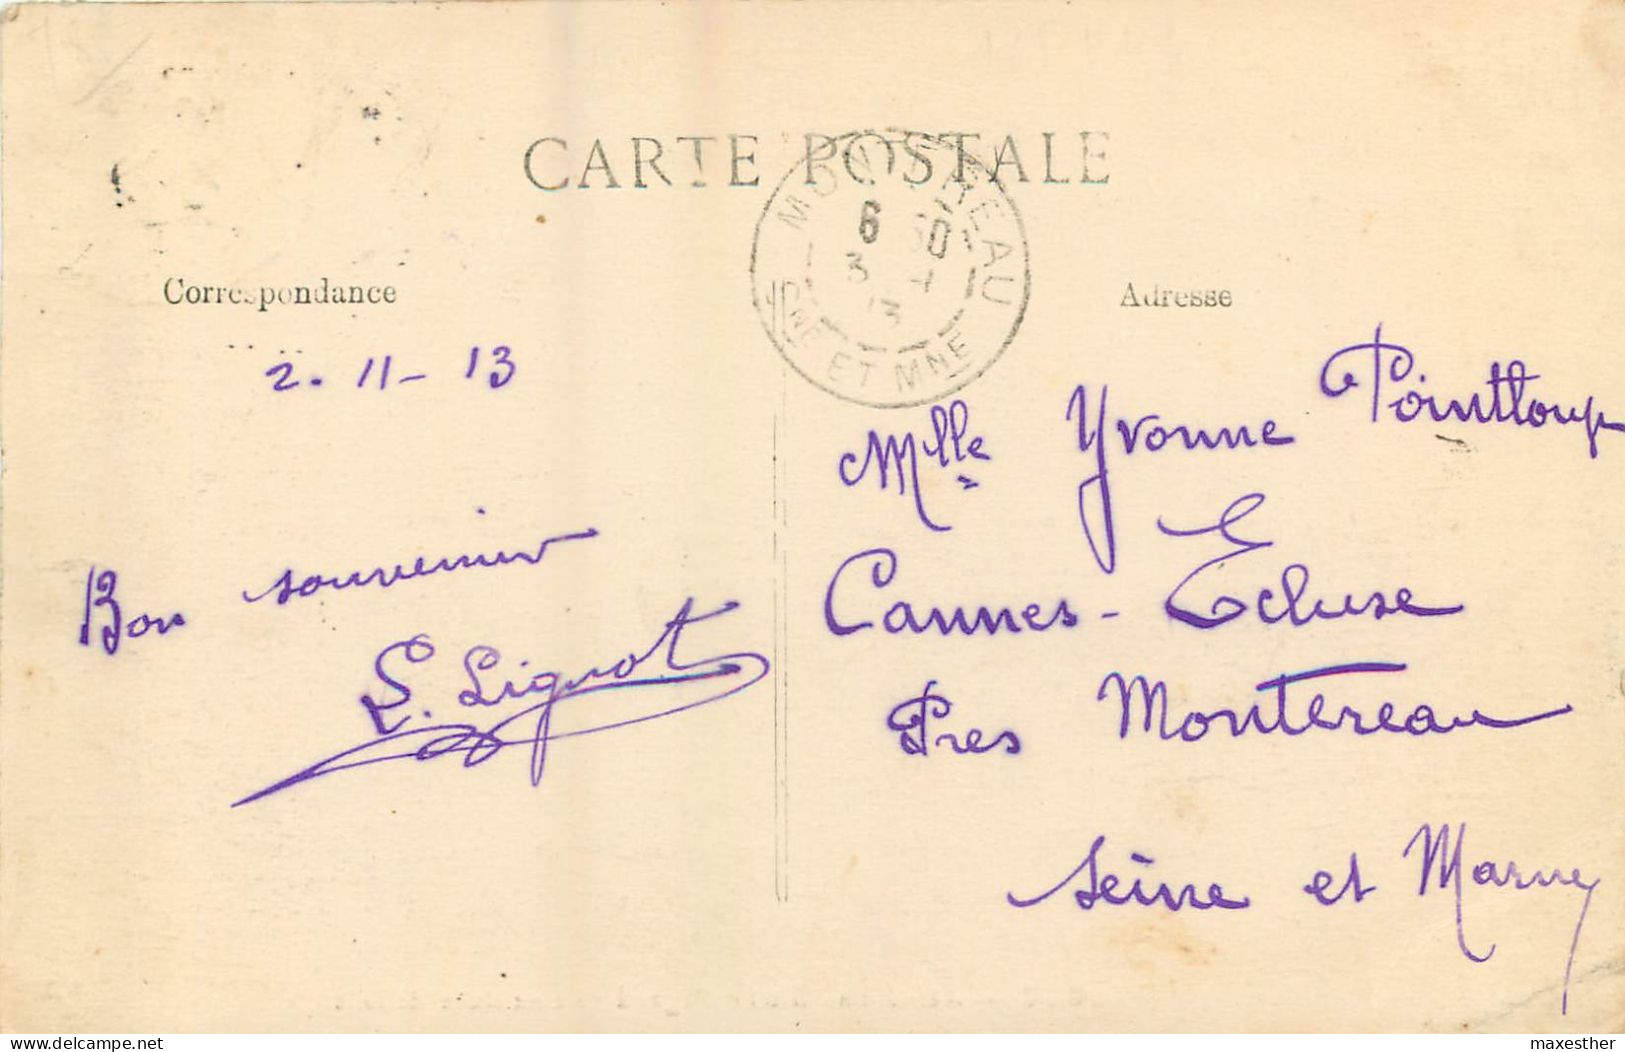 CARTE POSTALE
MONTEREAU
6 30
3 -11
13
SNE ET MNE
Correspondance
Adresse
2. 11 - 13
Mlle Yvonne Pointloup
Bon souvenir
Cannes-Ecluse
L. Lignot
Pres Montereau
Seine et Marne
delcampe.net
maxesther